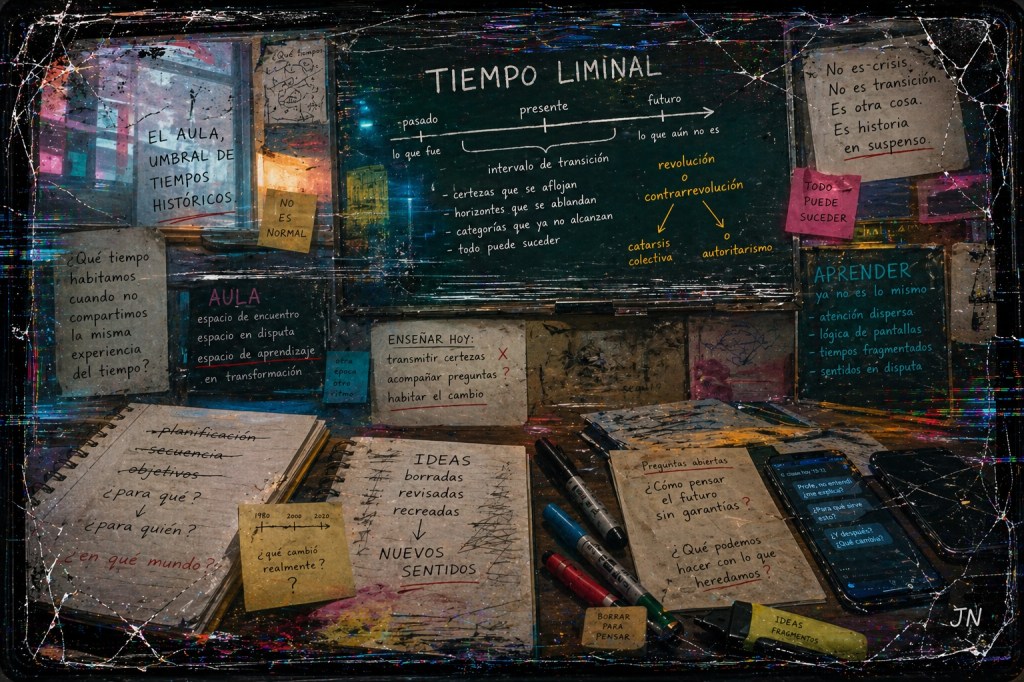 EL AULA,
UMBRAL DE
TIEMPOS
HISTÓRICOS.
¿Qué tiempo
NO
ES
NORMAL
¿Qué tiempo
habitamos
cuando no
compartimos
la misma
experiencia
del tiempo?
AULA
espacio de encuentro
espacio en disputa
espacio de aprendizaje
en transformación
otra
época
otro
ritmo
TIEMPO LIMINAL
pasado
presente
futuro
lo que fue
lo que aún no es
intervalo de transición
- certezas que se aflojan
- horizontes que se ablandan
- categorías que ya no alcanzan
- todo puede suceder
revolución
o
contrarrevolución
catarsis
colectiva
o
autoritarismo
No es crisis.
No es transición.
Es otra cosa.
Es historia
en suspenso.
TODO
PUEDE
SUCEDER
APRENDER
ya no es lo mismo
- atención dispersa
- lógica de pantallas
- tiempos fragmentados
- sentidos en disputa
ENSEÑAR HOY:
transmitir certezas X
acompañar preguntas ?
habitar el cambio
- planificación
secuencia
objetivos
¿para qué?
¿para quién?
¿en qué mundo?
1980 2000 2020
¿qué cambió
realmente?
?
IDEAS
borradas
revisadas
recreadas
NUEVOS
SENTIDOS
Preguntas abiertas
¿Cómo pensar
el futuro
sin garantías?
¿Qué podemos
hacer con lo que
heredamos?
Profe, no entendí
¿me explica?
¿Para qué sirve
esto?
¿Y después?
¿Qué cambia?
BORRAR
PARA
PENSAR
IDEAS
FRAGMENTOS
JN